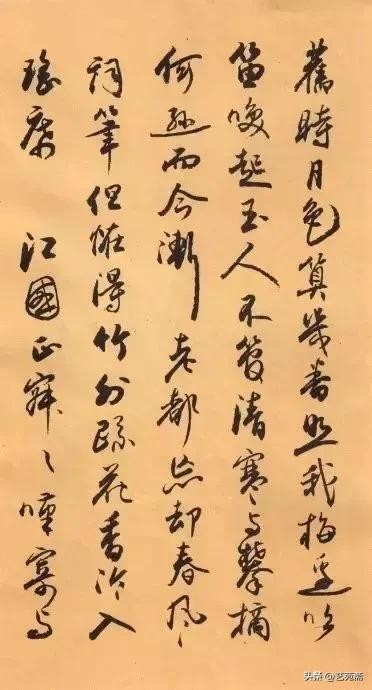 舊時月色算幾番照我梅邊吹
笛喚起玉人不管清寒与攀摘
何遜而今漸老都忘却春風
詞筆但恠得竹外疏花香冷入
瑤席 江國正寂々嘆寄与
头条 @艺苑斋